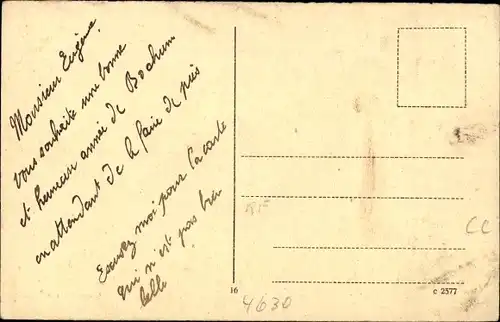 Monsieur Eugène.
vous souhaite une bonne
et heureuse année de Bochum
en attendant de le faire de près
Excusez moi pour la carte
qui n'est pas bien
belle
16
c 2577
4630
CC